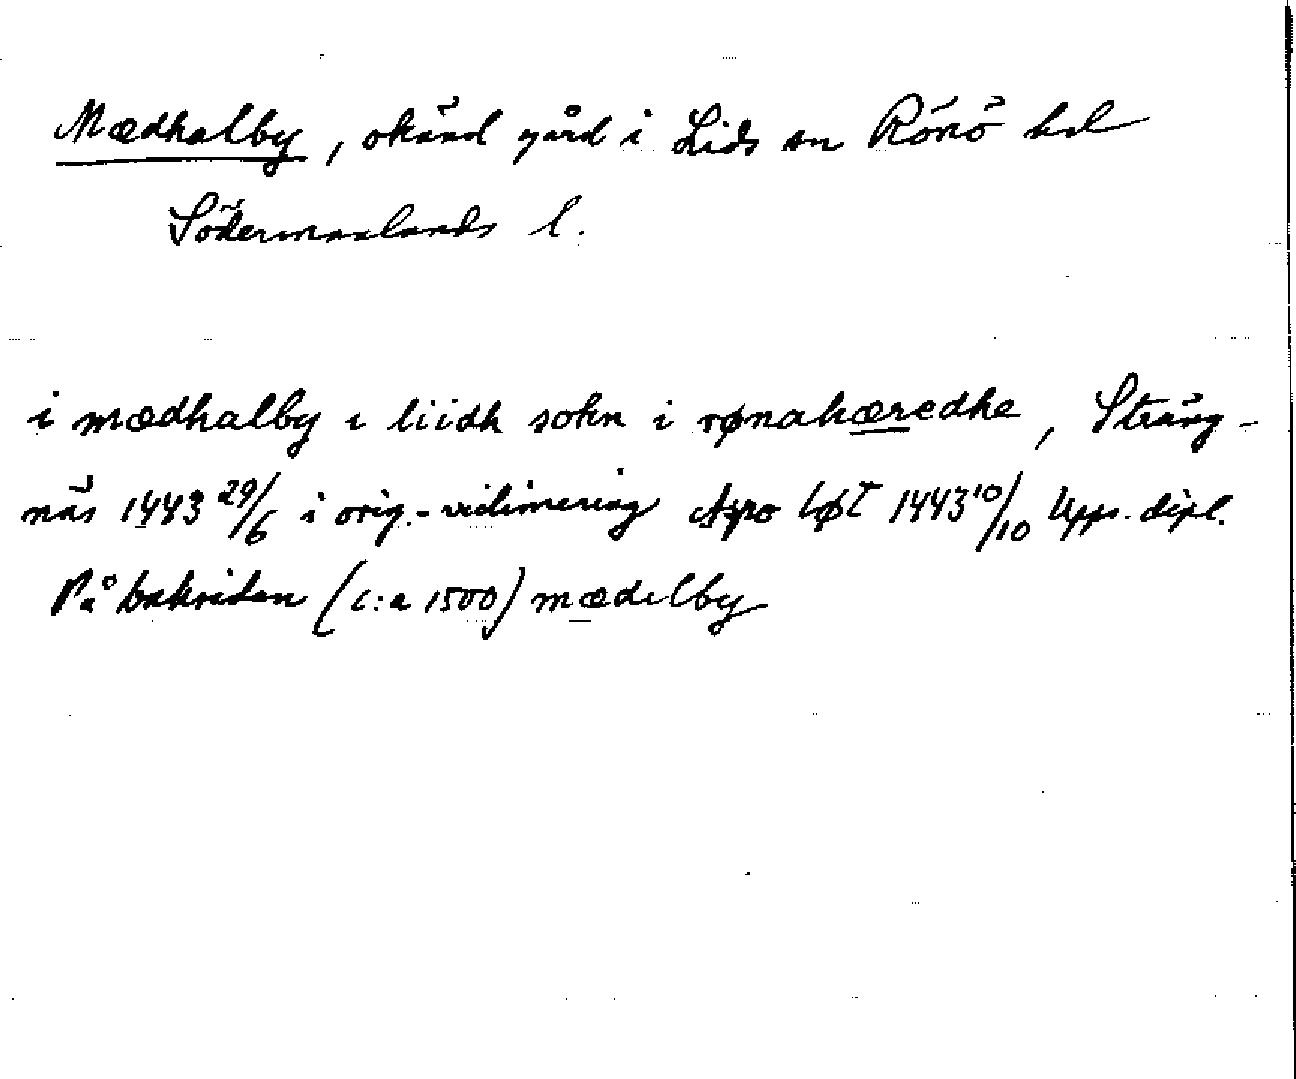 Mædhalby, okänd gård i Lids sn Rönö hd
Södermanlands l.
i mædhalby i liidh sokn i rønahæredhe, Sträng-
näs 1443 29/6 i orig.-vidimering Aspo løt 1443 10/10 Upps. dipl.
På baksidan (c:a 1500) mædelby